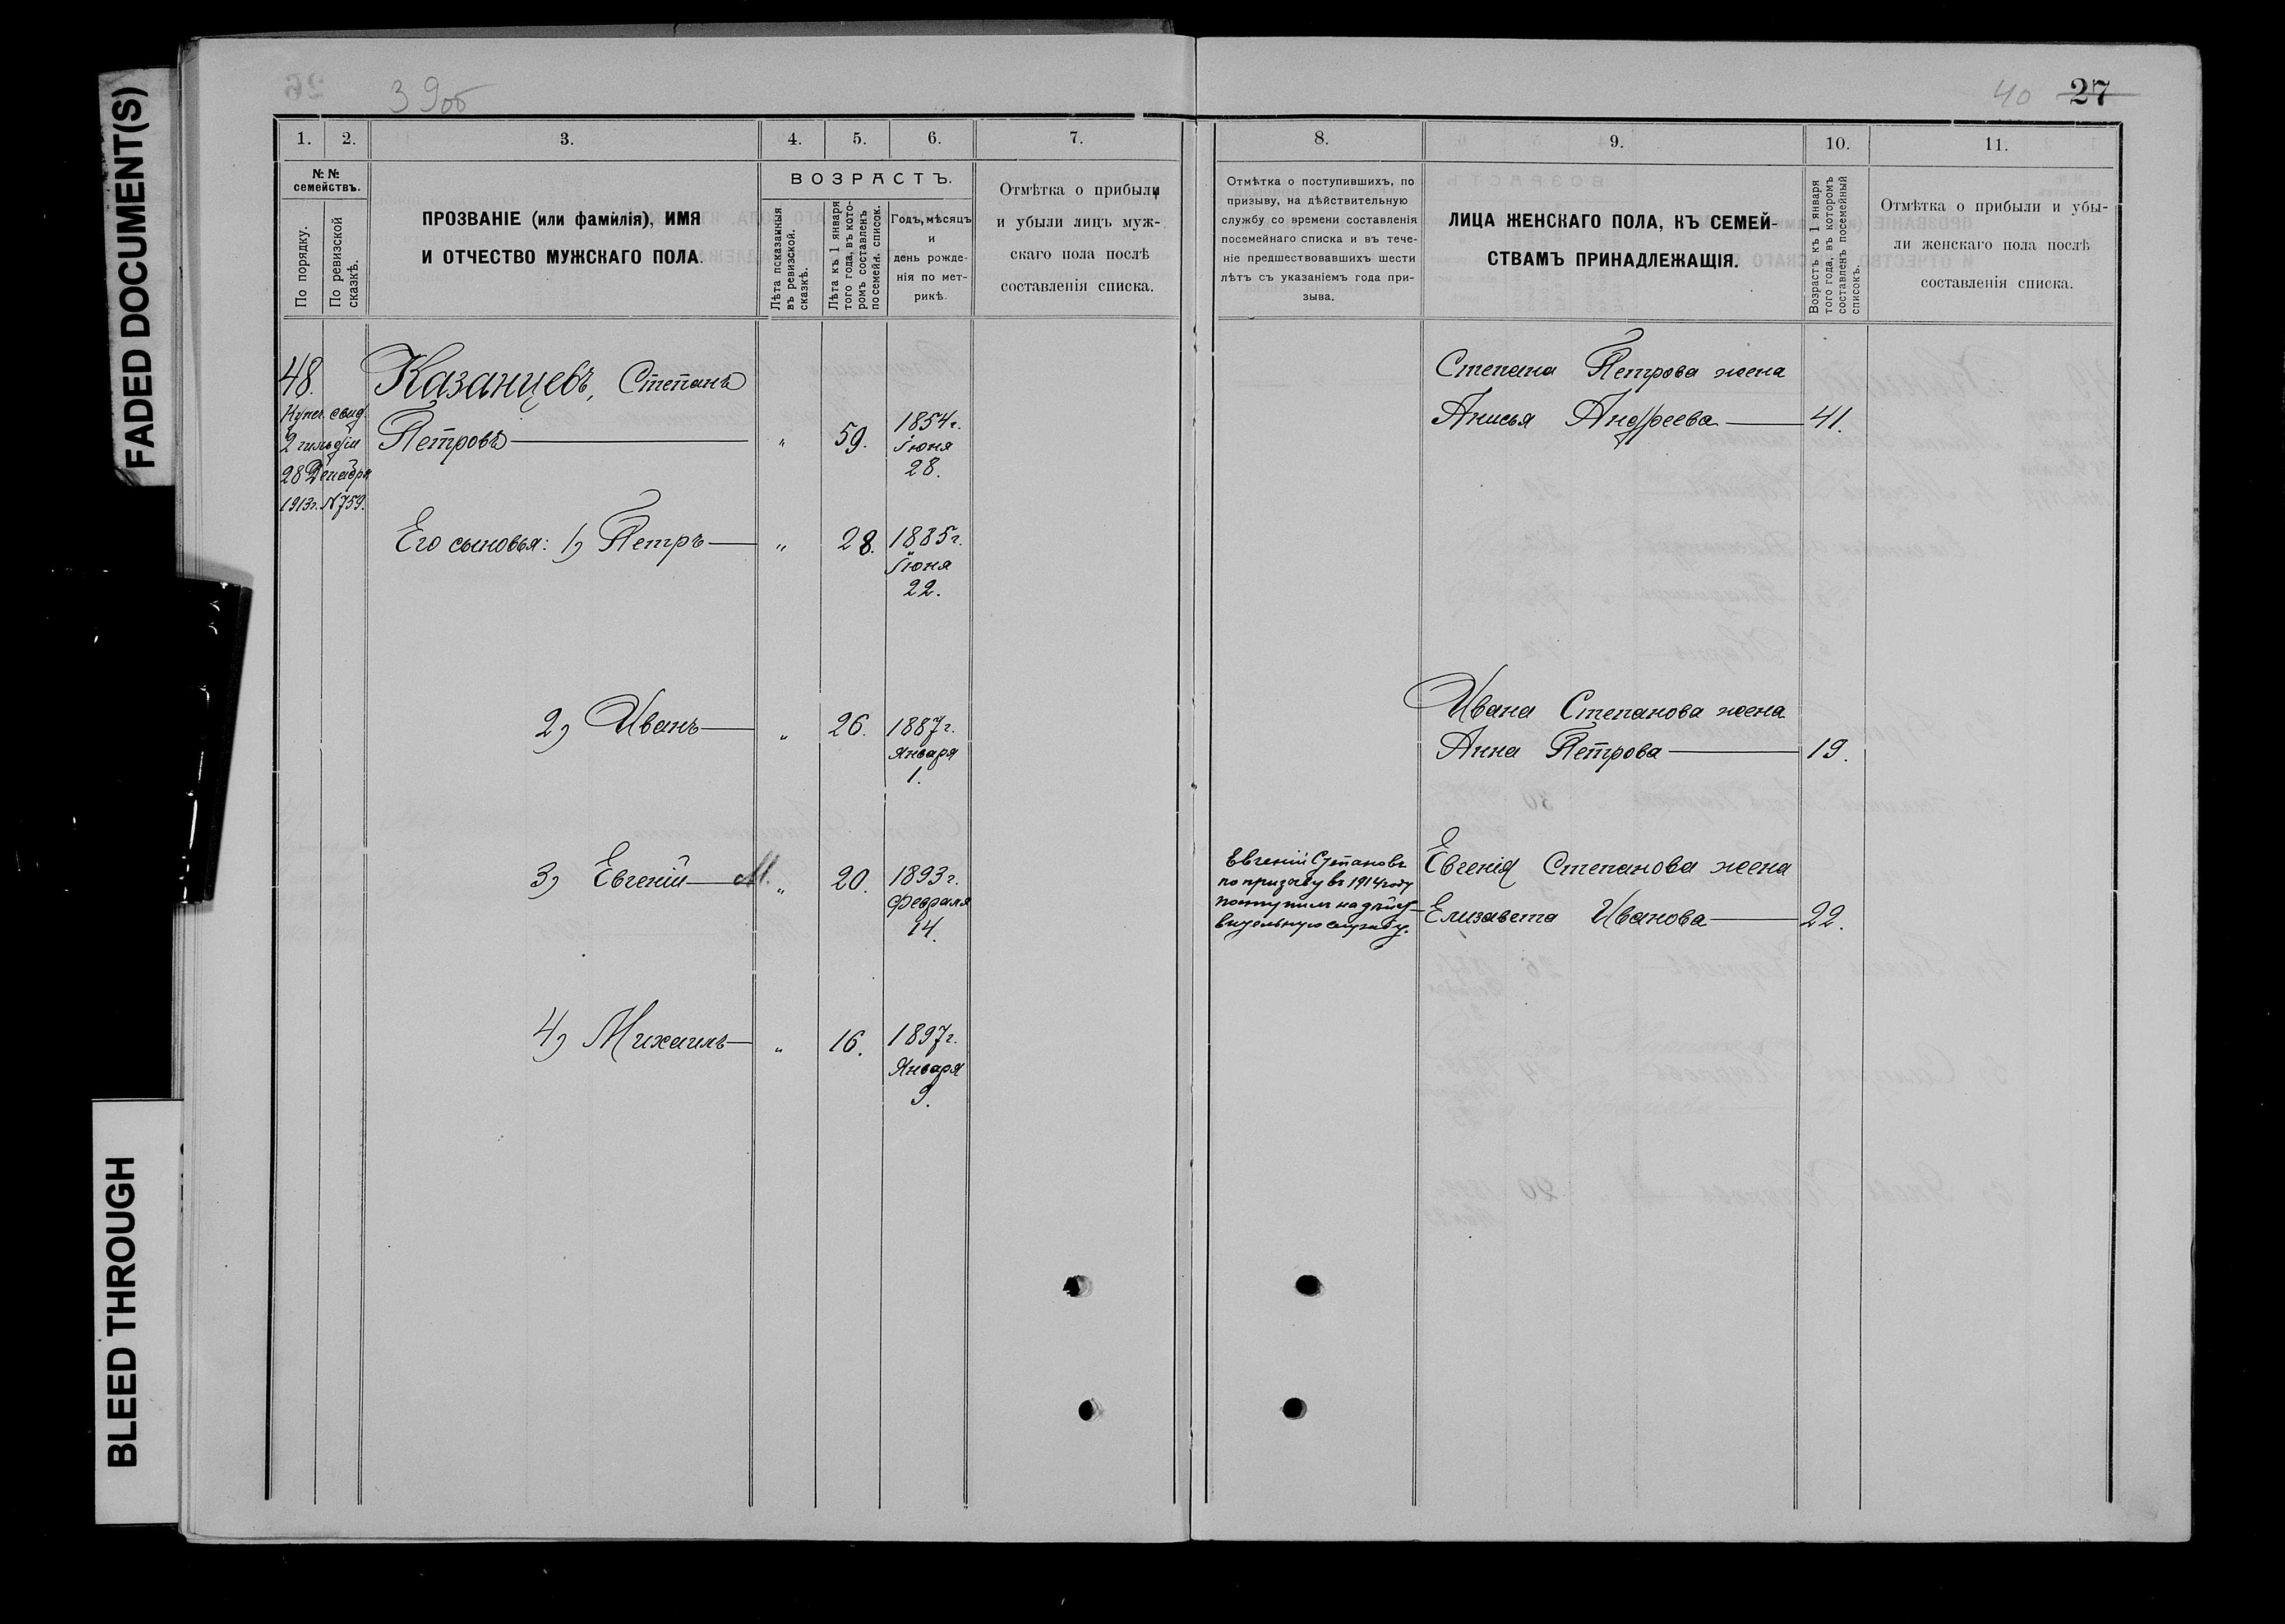 FADED DOCUMENT(S)
BLEED THROUGH
39об
40 27
1. 2. 3. 4. 5. 6. 7.
№ №
семействъ.
По порядку.
По ревизской
сказкѣ.
ПРОЗВАНІЕ (или фамилія), ИМЯ
И ОТЧЕСТВО МУЖСКАГО ПОЛА.
ВОЗРАСТЪ.
Лѣта показанныя
въ ревизской.
сказкѣ.
Лѣта къ 1 января
того года, въ кото-
ромъ составленъ
посемейн. списокъ.
Годъ, мѣсяцъ
и
день рожде-
нія по мет-
рикѣ.
Отмѣтка о прибыли
и убыли лицъ муж-
скаго пола послѣ
составленія списка.
48.
Купеч. свид.
2 гильдіи
28 Декабря
1913г. №759.
Казанцевъ, Степанъ
Петровъ „ 59. 1854г.
Іюня
28.
Его сыновья: 1) Петръ „ 28. 1885г.
Іюня
22.
2) Иванъ „ 26. 1887г.
Января
1.
3) Евгеній М. „ 20. 1893г.
Февраля
14.
4) Михаилъ „ 16. 1897г.
Января
9.
8. 9. 10. 11.
Отмѣтка о поступившихъ, по
призыву, на дѣйствительную
службу со времени составленія
посемейнаго списка и въ тече-
ніе предшествовавшихъ шести
лѣтъ съ указаніемъ года при-
зыва.
ЛИЦА ЖЕНСКАГО ПОЛА, КЪ СЕМЕЙ-
СТВАМЪ ПРИНАДЛЕЖАЩІЯ.
Возрастъ къ 1 января
того года, въ которомъ
составленъ посемейный
списокъ.
Отмѣтка о прибыли и убы-
ли женскаго пола послѣ
составленія списка.
Степана Петрова жена
Анисья Андреева 41.
Ивана Степанова жена
Анна Петрова 19.
Евгеній Степановъ
по призыву въ 1914 году
поступилъ на дѣйст-
вительную службу.
Евгенія Степанова жена
Елизавета Иванова 22.